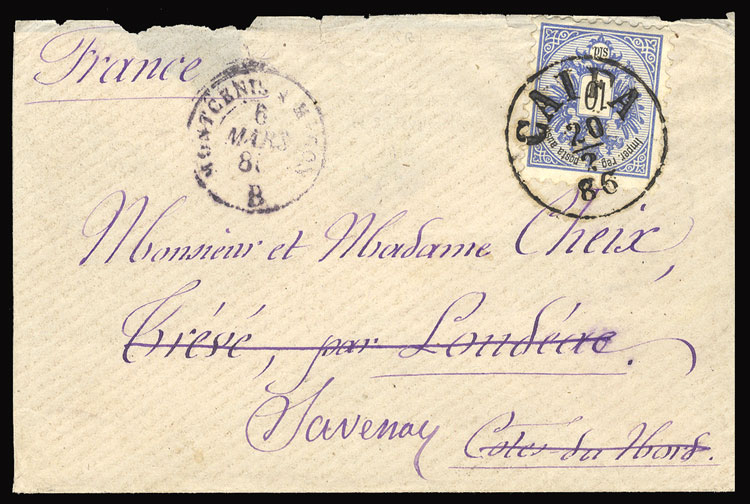 France
MONTCENIS A MACON
6
MARS
B
10
Imper. reg. posta aust
CAIFA
20/2
86
Monsieur et Madame Cheix,
Trévé, par Loudéac.
Savenay Côtes du Nord.